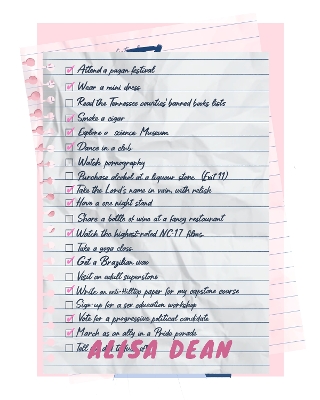 Attend a pagan festival
Wear a mini dress
Read the Tennessee counties banned books lists
Smoke a cigar
Explore a science Museum
Dance in a club
Watch pornography
Purchase alcohol at a liqueur store (Exit 11)
Take the Lord's name in vain with relish
Have a one night stand
Share a bottle of wine at a fancy restaurant
Watch the highest-rated NC-17 films
Take a yoga class
Get a Brazilian wax
Visit an adult superstore
Write an anti-Hilltop paper for my capstone course
Sign-up for a sex education workshop
Vote for a progressive political candidate
March as an ally in a Pride parade
Tell
ALISA DEAN